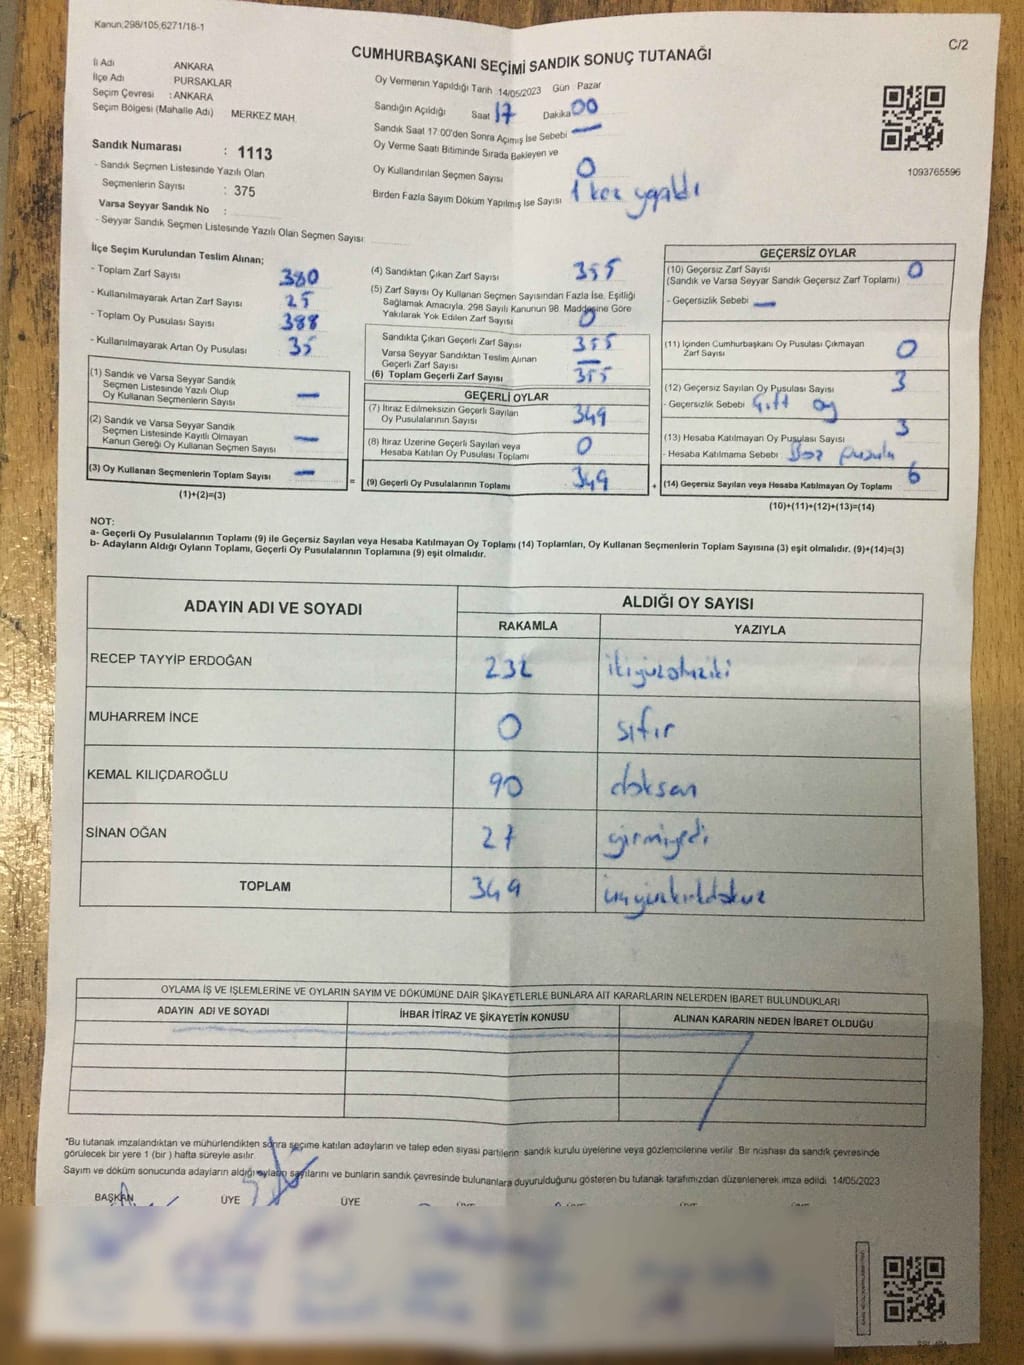 Kanun:298/105,6271/18-1
C/2
CUMHURBAŞKANI SEÇİMİ SANDIK SONUÇ TUTANAĞI
İl Adı ANKARA
İlçe Adı PURSAKLAR
Seçim Çevresi : ANKARA
Seçim Bölgesi (Mahalle Adı) MERKEZ MAH.
Sandık Numarası : 1113
- Sandık Seçmen Listesinde Yazılı Olan
Seçmenlerin Sayısı : 375
Varsa Seyyar Sandık No :
- Seyyar Sandık Seçmen Listesinde Yazılı Olan Seçmen Sayısı
Oy Vermenin Yapıldığı Tarih 14/05/2023 Gün Pazar
Sandığın Açıldığı Saat 17 Dakika 00
Sandık Saat 17:00'den Sonra Açımış İse Sebebi —
Oy Verme Saati Bitiminde Sırada Bekleyen ve
Oy Kullandırılan Seçmen Sayısı 0
Birden Fazla Sayım Döküm Yapılmış İse Sayısı 1 kez yapıldı
1093765596
İlçe Seçim Kurulundan Teslim Alınan;
- Toplam Zarf Sayısı 380
- Kullanılmayarak Artan Zarf Sayısı 25
- Toplam Oy Pusulası Sayısı 388
- Kullanılmayarak Artan Oy Pusulası 35
(1) Sandık ve Varsa Seyyar Sandık
Seçmen Listesinde Yazılı Olup
Oy Kullanan Seçmenlerin Sayısı —
(2) Sandık ve Varsa Seyyar Sandık
Seçmen Listesinde Kayıtlı Olmayan
Kanun Gereği Oy Kullanan Seçmen Sayısı —
(3) Oy Kullanan Seçmenlerin Toplam Sayısı —
(1)+(2)=(3)
=
(4) Sandıktan Çıkan Zarf Sayısı 355
(5) Zarf Sayısı Oy Kullanan Seçmen Sayısından Fazla İse, Eşitliği
Sağlamak Amacıyla, 298 Sayılı Kanunun 98. Maddesine Göre
Yakılarak Yok Edilen Zarf Sayısı 0
Sandıkta Çıkan Geçerli Zarf Sayısı 355
Varsa Seyyar Sandıktan Teslim Alınan
Geçerli Zarf Sayısı —
(6) Toplam Geçerli Zarf Sayısı 355
GEÇERLİ OYLAR
(7) İtiraz Edilmeksizin Geçerli Sayılan
Oy Pusulalarının Sayısı 349
(8) İtiraz Üzerine Geçerli Sayılan veya
Hesaba Katılan Oy Pusulası Toplamı 0
(9) Geçerli Oy Pusulalarının Toplamı 349
+
GEÇERSİZ OYLAR
(10) Geçersiz Zarf Sayısı 0
(Sandık ve Varsa Seyyar Sandık Geçersiz Zarf Toplamı)
- Geçersizlik Sebebi —
(11) İçinden Cumhurbaşkanı Oy Pusulası Çıkmayan
Zarf Sayısı 0
(12) Geçersiz Sayılan Oy Pusulası Sayısı 3
- Geçersizlik Sebebi Çift oy
(13) Hesaba Katılmayan Oy Pusulası Sayısı 3
- Hesaba Katılmama Sebebi Boz pusula
(14) Geçersiz Sayılan veya Hesaba Katılmayan Oy Toplamı 6
(10)+(11)+(12)+(13)=(14)
NOT:
a- Geçerli Oy Pusulalarının Toplamı (9) ile Geçersiz Sayılan veya Hesaba Katılmayan Oy Toplamı (14) Toplamları, Oy Kullanan Seçmenlerin Toplam Sayısına (3) eşit olmalıdır. (9)+(14)=(3)
b- Adayların Aldığı Oyların Toplamı, Geçerli Oy Pusulalarının Toplamına (9) eşit olmalıdır.
ADAYIN ADI VE SOYADI
ALDIĞI OY SAYISI
RAKAMLA YAZIYLA
RECEP TAYYİP ERDOĞAN 232 ikiyüzotuziki
MUHARREM İNCE 0 sıfır
KEMAL KILIÇDAROĞLU 90 doksan
SİNAN OĞAN 27 yirmiyedi
TOPLAM 349 üçyüzkırkdokuz
OYLAMA İŞ VE İŞLEMLERİNE VE OYLARIN SAYIM VE DÖKÜMÜNE DAİR ŞİKAYETLERLE BUNLARA AİT KARARLARIN NELERDEN İBARET BULUNDUKLARI
ADAYIN ADI VE SOYADI İHBAR İTİRAZ VE ŞİKAYETİN KONUSU ALINAN KARARIN NEDEN İBARET OLDUĞU
"Bu tutanak imzalandıktan ve mühürlendikten sonra seçime katılan adayların ve talep eden siyasi partilerin sandık kurulu üyelerine veya gözlemcilerine verilir. Bir nüshası da sandık çevresinde
görülecek bir yere 1 (bir) hafta süreyle asılır.
Sayım ve döküm sonucunda adayların aldığı oyların sayılarını ve bunların sandık çevresinde bulunanlara duyurulduğunu gösteren bu tutanak tarafımızdan düzenlenerek imza edildi. 14/05/2023
BAŞKAN ÜYE ÜYE